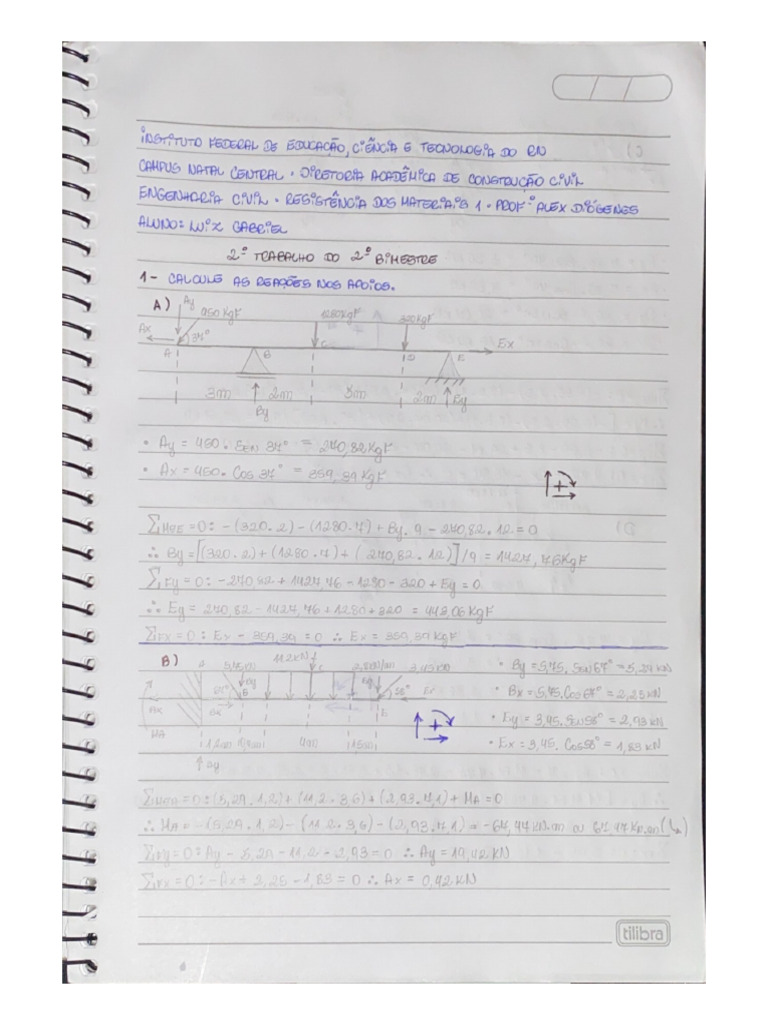 INSTITUTO FEDERAL DE EDUCAÇÃO, CIÊNCIA E TECNOLOGIA DO RN
CAMPUS NATAL CENTRAL • DIRETORIA ACADÊMICA DE CONSTRUÇÃO CIVIL
ENGENHARIA CIVIL • RESISTÊNCIA DOS MATERIAIS 1 • PROF.º ALEX DIÓGENES
ALUNO: LUIZ GABRIEL
2º TRABALHO DO 2º BIMESTRE
1- CALCULE AS REAÇÕES NOS APOIOS.
A)
Ay 450 KgF 1280KgF 320KgF
Ax 37° Ex
A B C D E
3m 2m 5m 2m
By Ey
• Ay = 450. Sen 37° = 270,82 KgF
• Ax = 450. Cos 37° = 359,39 KgF
∑MFE = 0: -(320.2) - (1280.7) + By. 9 - 270,82. 12 = 0
∴ By = [(320.2) + (1280.7) + (270,82. 12)] / 9 = 1427,76 KgF
∑Fy = 0: -270,82 + 1427,76 - 1280 - 320 + Ey = 0
∴ Ey = 270,82 - 1427,76 + 1280 + 320 = 443,06 KgF
∑Fx = 0: Ex - 359,39 = 0 ∴ Ex = 359,39 KgF
B)
A 11,2KN C 2,8KN/m 3,45KN
67° By B Ey 58° Ex
Ax Bx E
MA
4m 1,5m
Ay
• By = 5,75. Sen 67° = 5,29 KN
• Bx = 5,75. Cos 67° = 2,25 KN
• Ey = 3,45. Sen 58° = 2,93 KN
• Ex = 3,45. Cos 58° = 1,83 KN
= 0: (5,29. 1,2) + (11,2. 3,6) + (2,93. 7,1) + MA = 0
∴ MA = -(5,29. 1,2) - (11,2. 3,6) - (2,93. 7,1) = -67,47 KN.m ou 67,47 KN.m (↳)
∑Fy = 0: Ay - 5,29 - 11,2 - 2,93 = 0 ∴ Ay = 19,42 KN
∑Fx = 0: -Ax + 2,25 - 1,83 = 0 ∴ Ax = 0,42 KN
tilibra